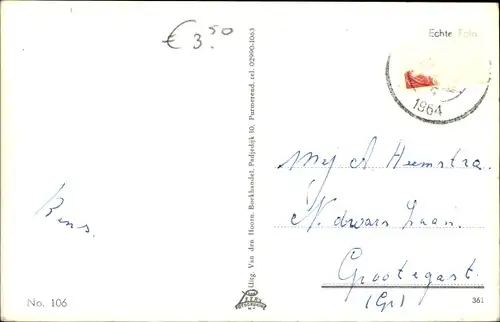 € 3.50
Echte Foto
1964
Mej A. Heemstra.
N. dwars Laan.
Grootegast.
(Gr)
Uitg. Van den Hoorn, Boekhandel, Padjedijk 10, Purmerend, tel. 02990-1063
No. 106
361